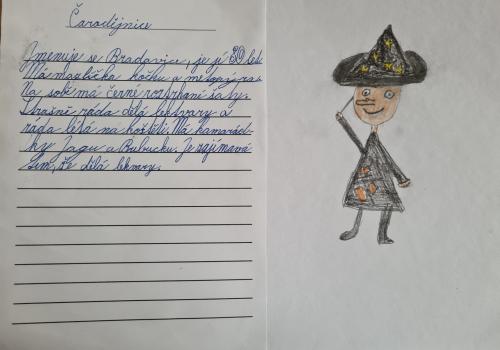 Čarodějnice
Jmenuje se Bradavice, je jí 30 let.
Má mazlíčka kočku a netopýra.
Na sobě má černé roztrhané šaty.
Strašně ráda dělá lektvary a
ráda létá na koštěti. Má kamarád-
ky Jagu a Bubucku. Je zajímavá
tím, že dělá lektvary.